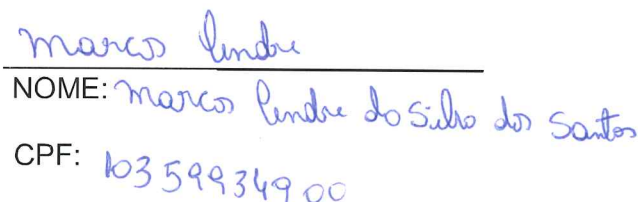 Marcos Andre
NOME: Marcos Andre da Silva dos Santos
CPF: 103599349 00